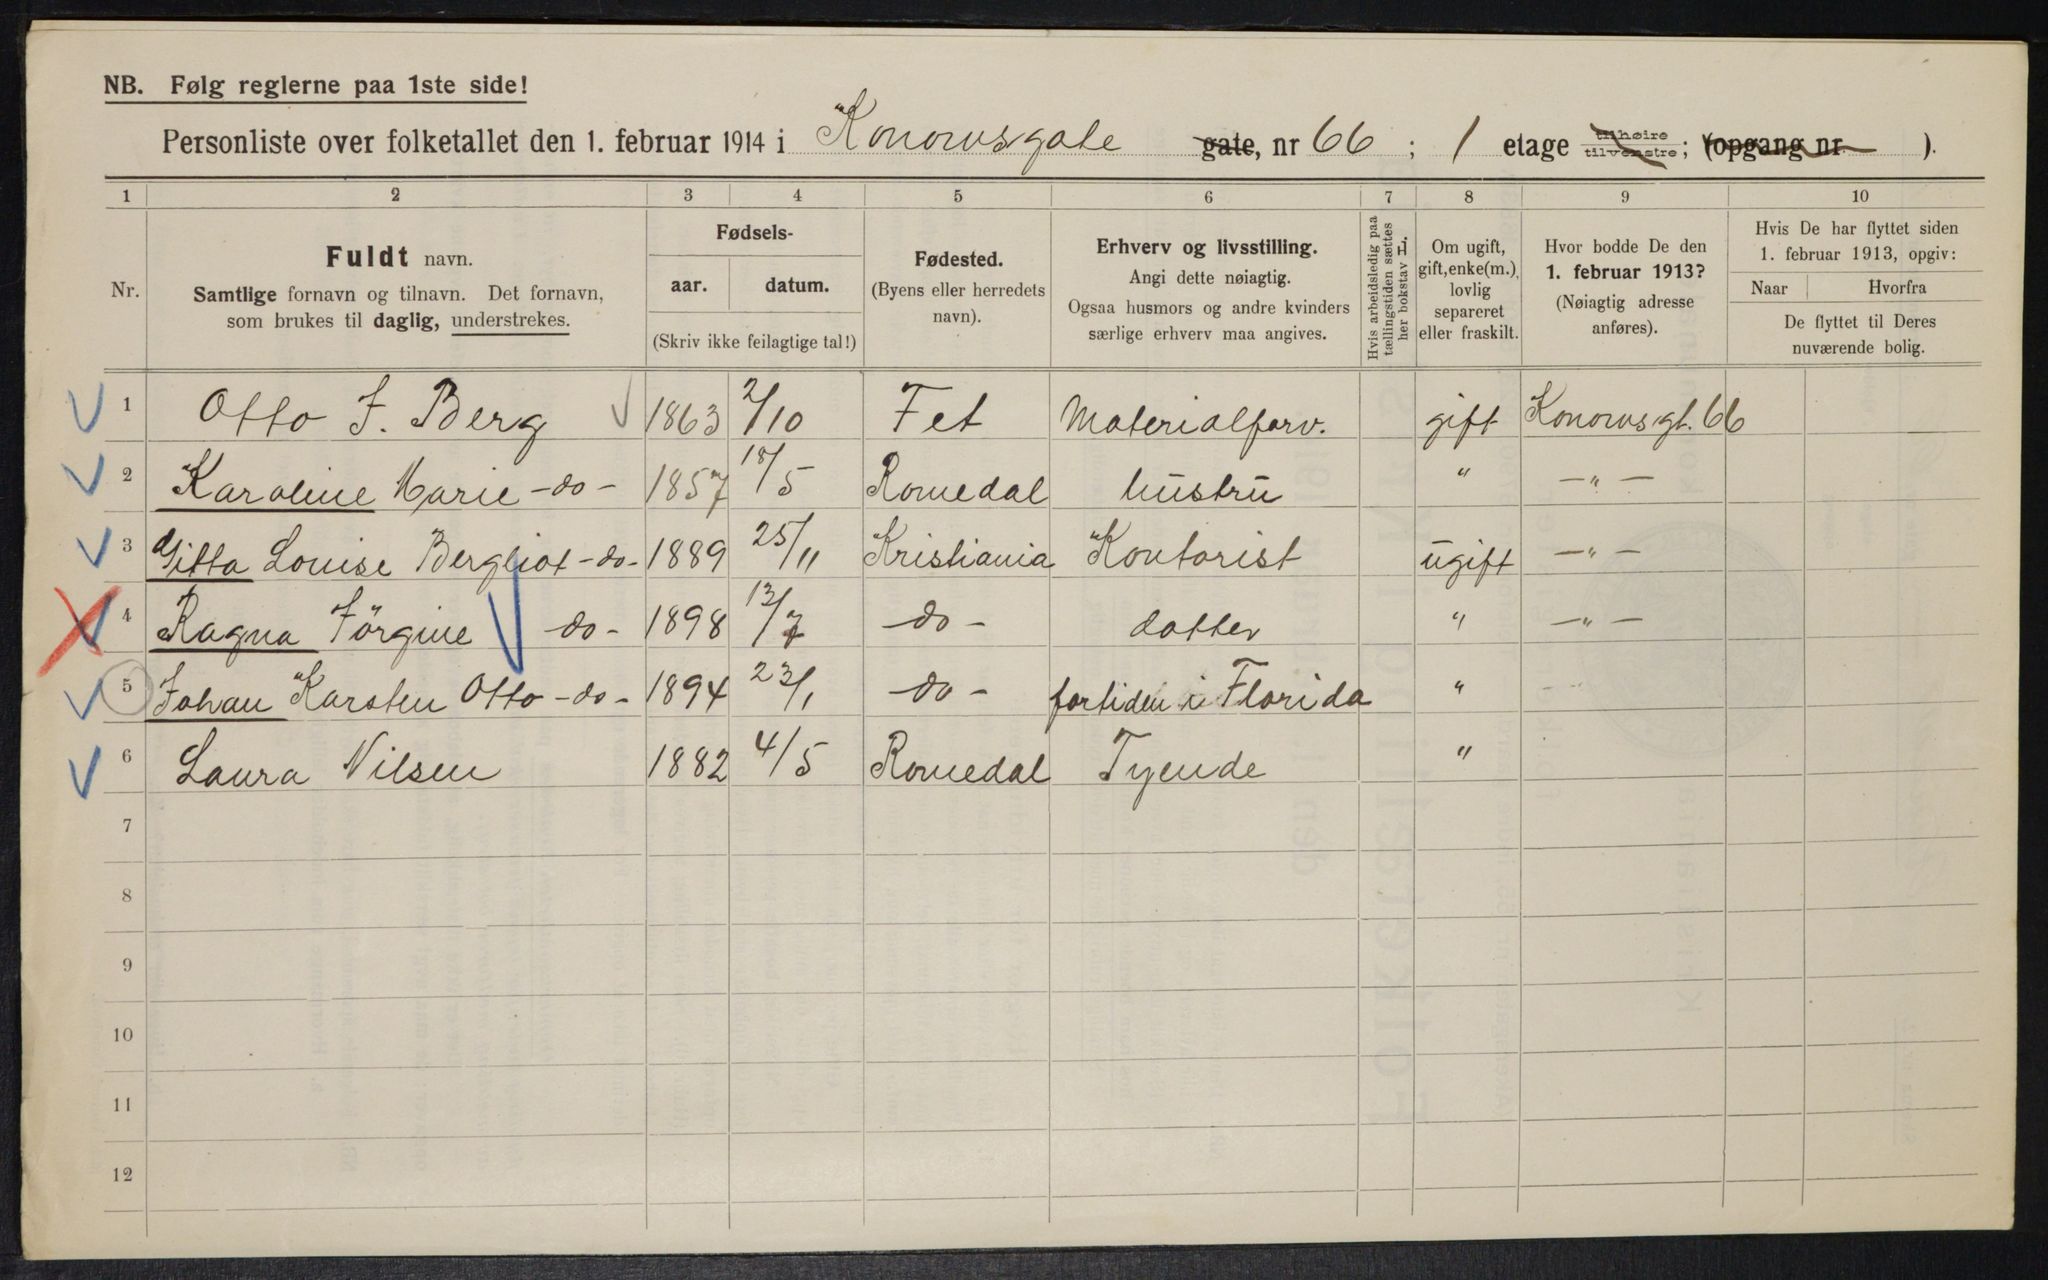 NB. Følg reglerne paa 1ste side!
Personliste over folketallet den 1. februar 1914 i Konowsgate gate, nr 66; 1 etage tilhøire tilvenstre; (opgang nr. ).
1 2 3 4 5 6 7 8 9 10
Nr.
Fuldt navn.
Samtlige fornavn og tilnavn. Det fornavn,
som brukes til daglig, understrekes.
Fødsels-
aar. datum.
(Skriv ikke feilagtige tal!)
Fødested.
(Byens eller herredets
navn).
Erhverv og livsstilling.
Angi dette nøiagtig.
Ogsaa husmors og andre kvinders
særlige erhverv maa angives.
Hvis arbeidsledig paa
tællingstiden sættes
her bokstav L.
Om ugift,
gift, enke(m.),
lovlig
separeret
eller fraskilt.
Hvor bodde De den
1. februar 1913?
(Nøiagtig adresse
anføres).
Hvis De har flyttet siden
1. februar 1913, opgiv:
Naar Hvorfra
De flyttet til Deres
nuværende bolig.
1 Otto J. Berg 1863 2/10 Fet Materialforv. gift Konowsgt. 66
2 Karoline Marie -do- 1857 18/5 Romedal hustru " -"-
3 Gitta Louise Bergliot -do- 1889 25/11 Kristiania Kontorist ugift -"-
4 Ragna Jörgine -do- 1898 13/7 -do- datter " -"-
5 Johan Karsten Otto -do- 1894 23/1 -do- fortiden i Florida "
6 Laura Nilsen 1882 4/5 Romedal Tyende "
7
8
9
10
11
12